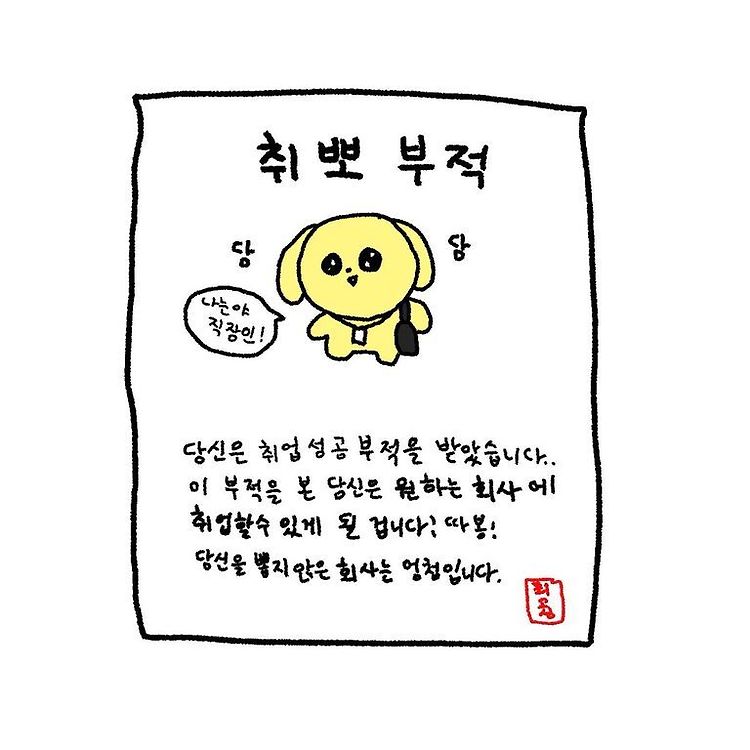 취뽀 부적
당 담
나는야
직장인!
당신은 취업성공부적을 받았습니다..
이 부적을 본 당신은 원하는 회사에
취업할수 있게 될 겁니다! 따봉!
당신을 뽑지않은 회사는 멍청입니다.